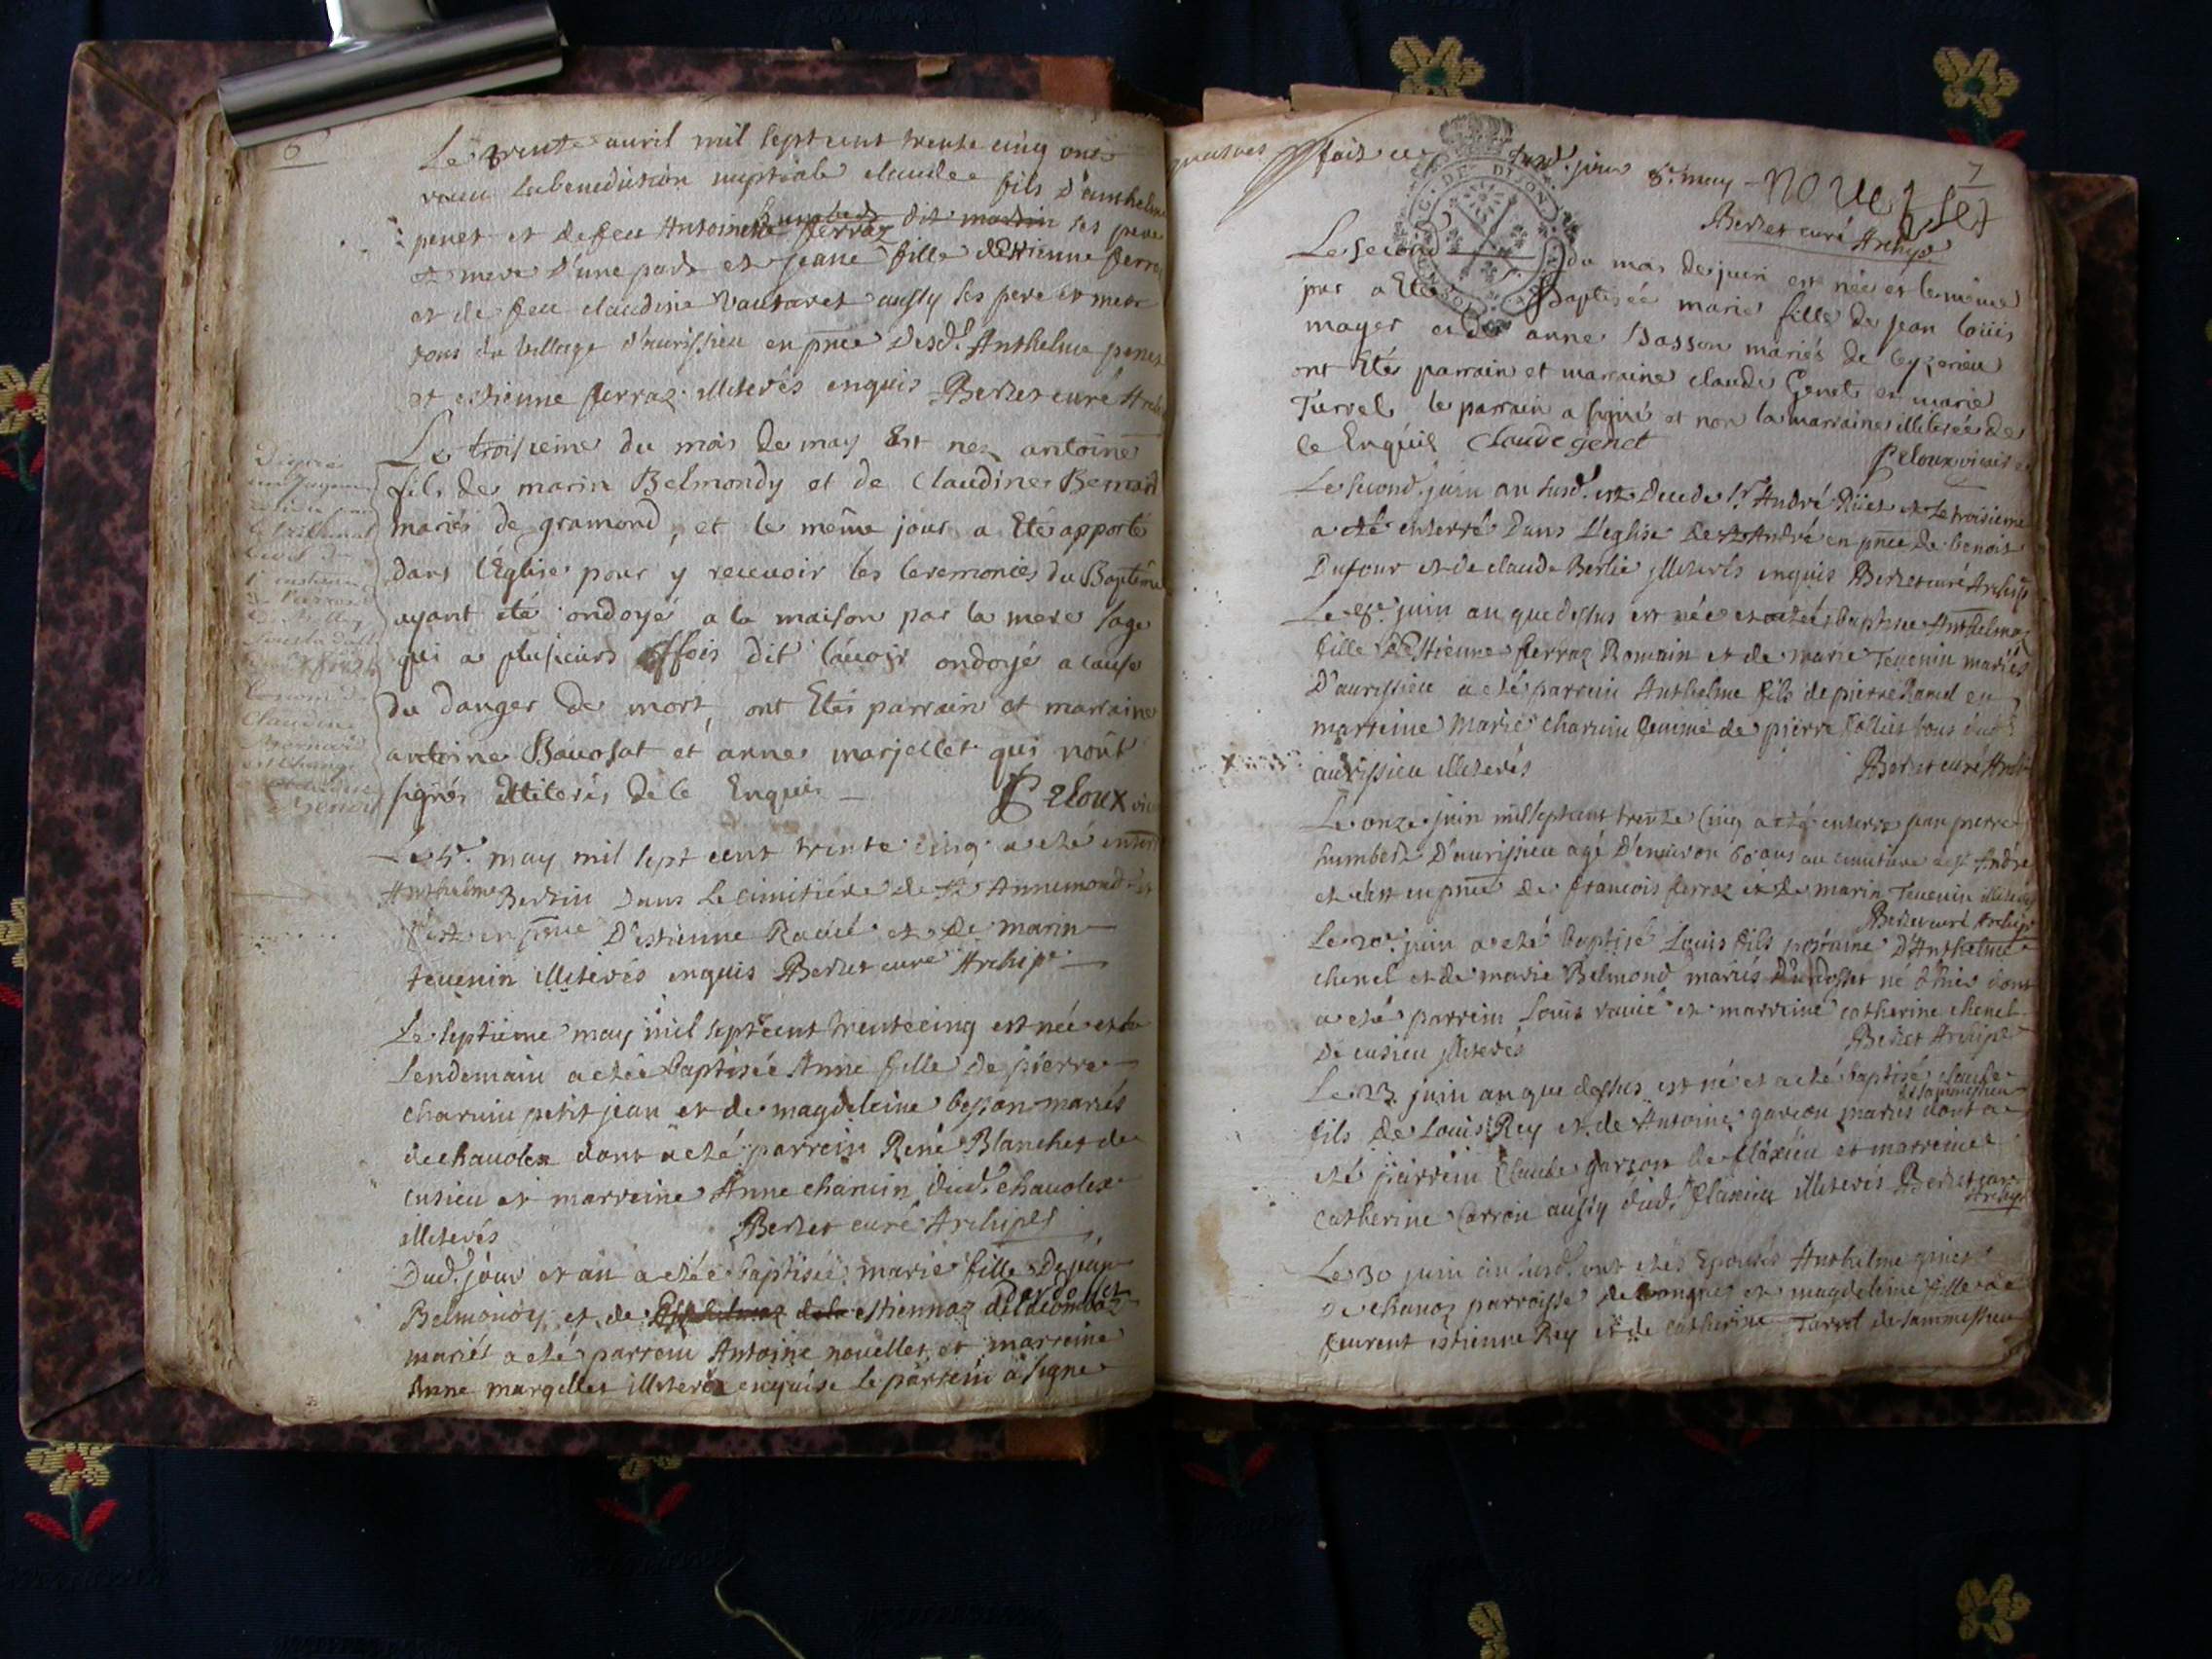 6
Le trente avril mil sept cent trente cinq ont
recu la benediction nuptiale claude fils d'anthelme
penet et de feu Antoinette ferraz humbert dit martin ses pere
et mere d'une part et jeane fille d'Estienne ferraz
et de feu claudine Vautaret aussy ses pere et mere
tous du village d'aurissieu en pnce desd. Anthelme penet
et estienne ferraz illiterés enquis Berzet curé Archi
Le troisieme du mois de may Est nez antoine
fils de marin Belmondy et de Claudine Bernard
mariés de gramond, et le même jour a Eté apporté
dans l'Église pour y recevoir les Ceremonies du Baptême
ayant été ondoyé a la maison par la mere sage
qui a plusieurs ffois dit l'avoir ondoyé a cause
du danger de mort, ont Etés parrain et marraine
antoine Bavosat et anne marjellet qui nont
signés illiterés de ce Enquis
Peloux vic
le tribunal
Claudine
Bernard
est changé
Le 5e. may mil sept cent trente cinq a eté enterré
Anthelme Bertin dans le cimitiére de St Annemond
c'est en pnce d'estienne Ravié et de marin
tevenin illiterés enquis Berzet curé Archip.
Le septieme may mil sept cent trente cinq est née et le
lendemain a etée baptisée Anne fille de pierre
charvin petit jean et de magdeleine besson mariés
de chavolex dont a eté parrein René Blanchet de
cusieu et marreine Anne charvin dud. chavolex
illiterés Berzet curé Archipet
Dud. jour et an a etée baptisée marie fille de jean
Belmondy et de estiennaz
mariés a eté parrein Antoine nouellet et marreine
Anne margellet illiterée enquise le parrein a signé
7
fait ce susd. jour 8e. may NOUELLET
Berzet curé Archip.
G. DE DIJON
Le second du mois de juin est née et le même
jour a Eté Baptisée marie fille de jean loüis
mayet et de anne Basson mariés de ceyzerieu
ont Etés parrain et marraine claude Genet et marie
Turrel le parrain a signé et non la marraine illiterée de
ce Enquis claude genet
Peloux vicaire
Le second juin an susd. est decedé Sr. André Rüet et le troisieme
a eté enterré dans l'eglise de St André en pnce de benoit
Dufour et de claude Berlié illiterés enquis Berzet curé Archip
Le 8e. juin an que dessus est née et a etée baptisee Anthelmaz
fille d'Estienne ferraz Romain et de marie Tevenin mariés
d'aurissieu a eté parrein Anthelme fils de pierre Ramel et
marreine Marie charvin femme de pierre Collet tous dud.
aurissieu illiterés Berzet curé Archi
Le onze juin mil sept cent trente cinq a eté enterré jean pierre
humbert d'aurissieu agé d'environ 60 ans au cimitiere de St André
et c'est en pnce de francois ferraz et de marin Tevenin illiterés
Berzet curé Archip
Le 20e. juin a eté baptisé Louis fils postume d'Anthelme
chenel et de marie Belmond mariés d'ardosset né hier dont
a eté parrein Louis ravié et marreine catherine chenel
de cusieu illiterés Berzet Archip.
Le 23. juin an que dessus est né et a eté baptisé claude
fils de Louis Rey et de Antoine garcon mariés de sammessieu dont a
eté parrein Claude garcon de flaxieu et marreine
catherine Carron aussy dud. flaxieu illiterés Berzet curé
Archip
Le 30 juin an susd. ont etés Epousés Anthelme
de chanoz parroisse de et magdeleine fille de
feurent estienne Rey et de catherine Turrel de sammessieu